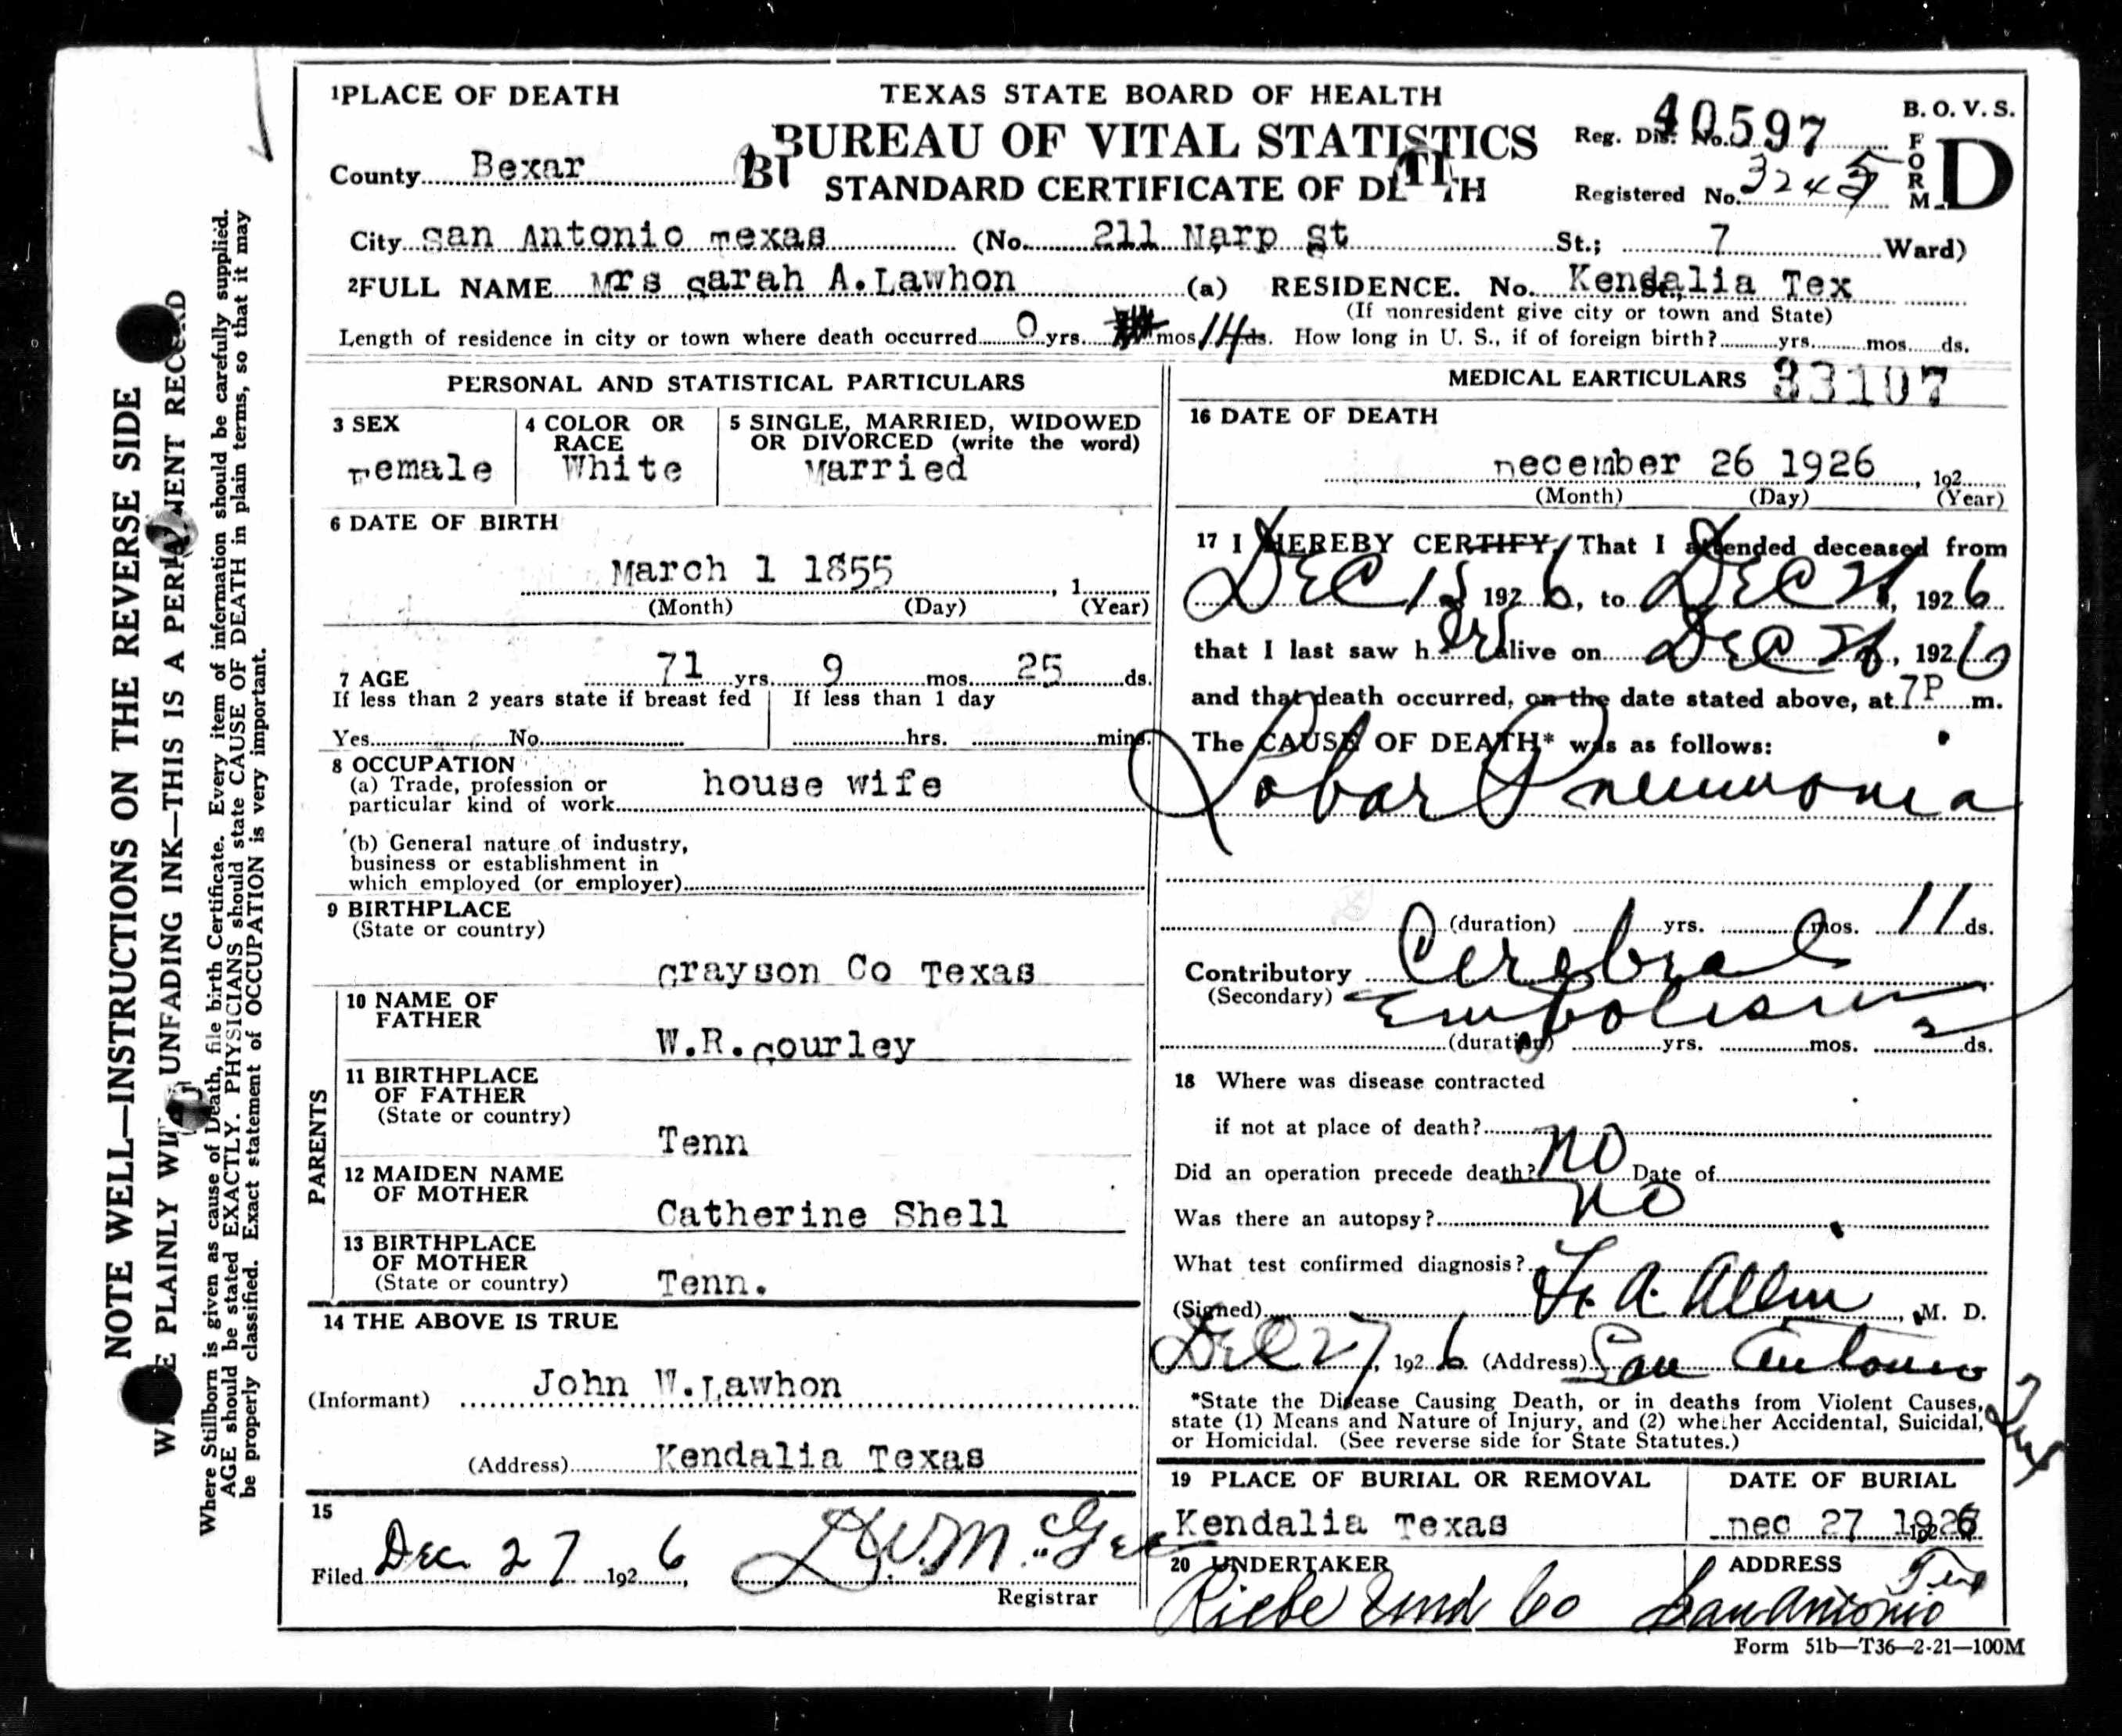 1 PLACE OF DEATH
TEXAS STATE BOARD OF HEALTH
B. O. V. S.
BUREAU OF VITAL STATISTICS
Reg. Dis. No. 40597
FORM D
County Bexar
STANDARD CERTIFICATE OF DEATH
Registered No. 3245
City San Antonio Texas (No. 211 Narp St St.; 7 Ward)
2 FULL NAME Mrs Sarah A. Lawhon (a) RESIDENCE. No. Kendalia Tex St.,
(If nonresident give city or town and State)
Length of residence in city or town where death occurred 0 yrs. mos 14 ds. How long in U. S., if of foreign birth? yrs. mos. ds.
PERSONAL AND STATISTICAL PARTICULARS
3 SEX
Female
4 COLOR OR RACE
White
5 SINGLE, MARRIED, WIDOWED
OR DIVORCED (write the word)
Married
6 DATE OF BIRTH
March 1 1855 , 1
(Month) (Day) (Year)
7 AGE 71 yrs. 9 mos. 25 ds.
If less than 2 years state if breast fed
If less than 1 day
Yes No
hrs. mins.
8 OCCUPATION
(a) Trade, profession or
particular kind of work house wife
(b) General nature of industry,
business or establishment in
which employed (or employer)
9 BIRTHPLACE
(State or country)
Grayson Co Texas
PARENTS
10 NAME OF
FATHER
W.R. Gourley
11 BIRTHPLACE
OF FATHER
(State or country)
Tenn
12 MAIDEN NAME
OF MOTHER
Catherine Shell
13 BIRTHPLACE
OF MOTHER
(State or country)
Tenn.
14 THE ABOVE IS TRUE
(Informant) John W. Lawhon
(Address) Kendalia Texas
15
Filed Dec 27 192 6,
Registrar
MEDICAL EARTICULARS 33107
16 DATE OF DEATH
December 26 1926 , 192
(Month) (Day) (Year)
17 I HEREBY CERTIFY, That I attended deceased from
DEC 15 192 6, to DEC 26, 192 6
that I last saw her alive on DEC 26, 192 6
and that death occurred, on the date stated above, at 7P m.
The CAUSE OF DEATH* was as follows:
Lobar Pneumonia
(duration) yrs. mos. 11 ds.
Contributory Cerebral
(Secondary) Embolism
(duration) yrs. mos. 2 ds.
18 Where was disease contracted
if not at place of death?
Did an operation precede death? no Date of
Was there an autopsy? no
What test confirmed diagnosis?
(Signed) A. Allen, M. D.
Dec 27, 192 6 (Address) San Antonio Tex
*State the Disease Causing Death, or in deaths from Violent Causes,
state (1) Means and Nature of Injury, and (2) whether Accidental, Suicidal,
or Homicidal. (See reverse side for State Statutes.)
19 PLACE OF BURIAL OR REMOVAL
Kendalia Texas
DATE OF BURIAL
Dec 27 1926
20 UNDERTAKER
Riebe Und Co
ADDRESS
San Antonio Tex
Form 51b—T36—2-21—100M
NOTE WELL—INSTRUCTIONS ON THE REVERSE SIDE
WRITE PLAINLY WITH UNFADING INK—THIS IS A PERMANENT RECORD
Where Stillborn is given as cause of Death, file birth Certificate. Every item of information should be carefully supplied.
AGE should be stated EXACTLY. PHYSICIANS should state CAUSE OF DEATH in plain terms, so that it may
be properly classified. Exact statement of OCCUPATION is very important.